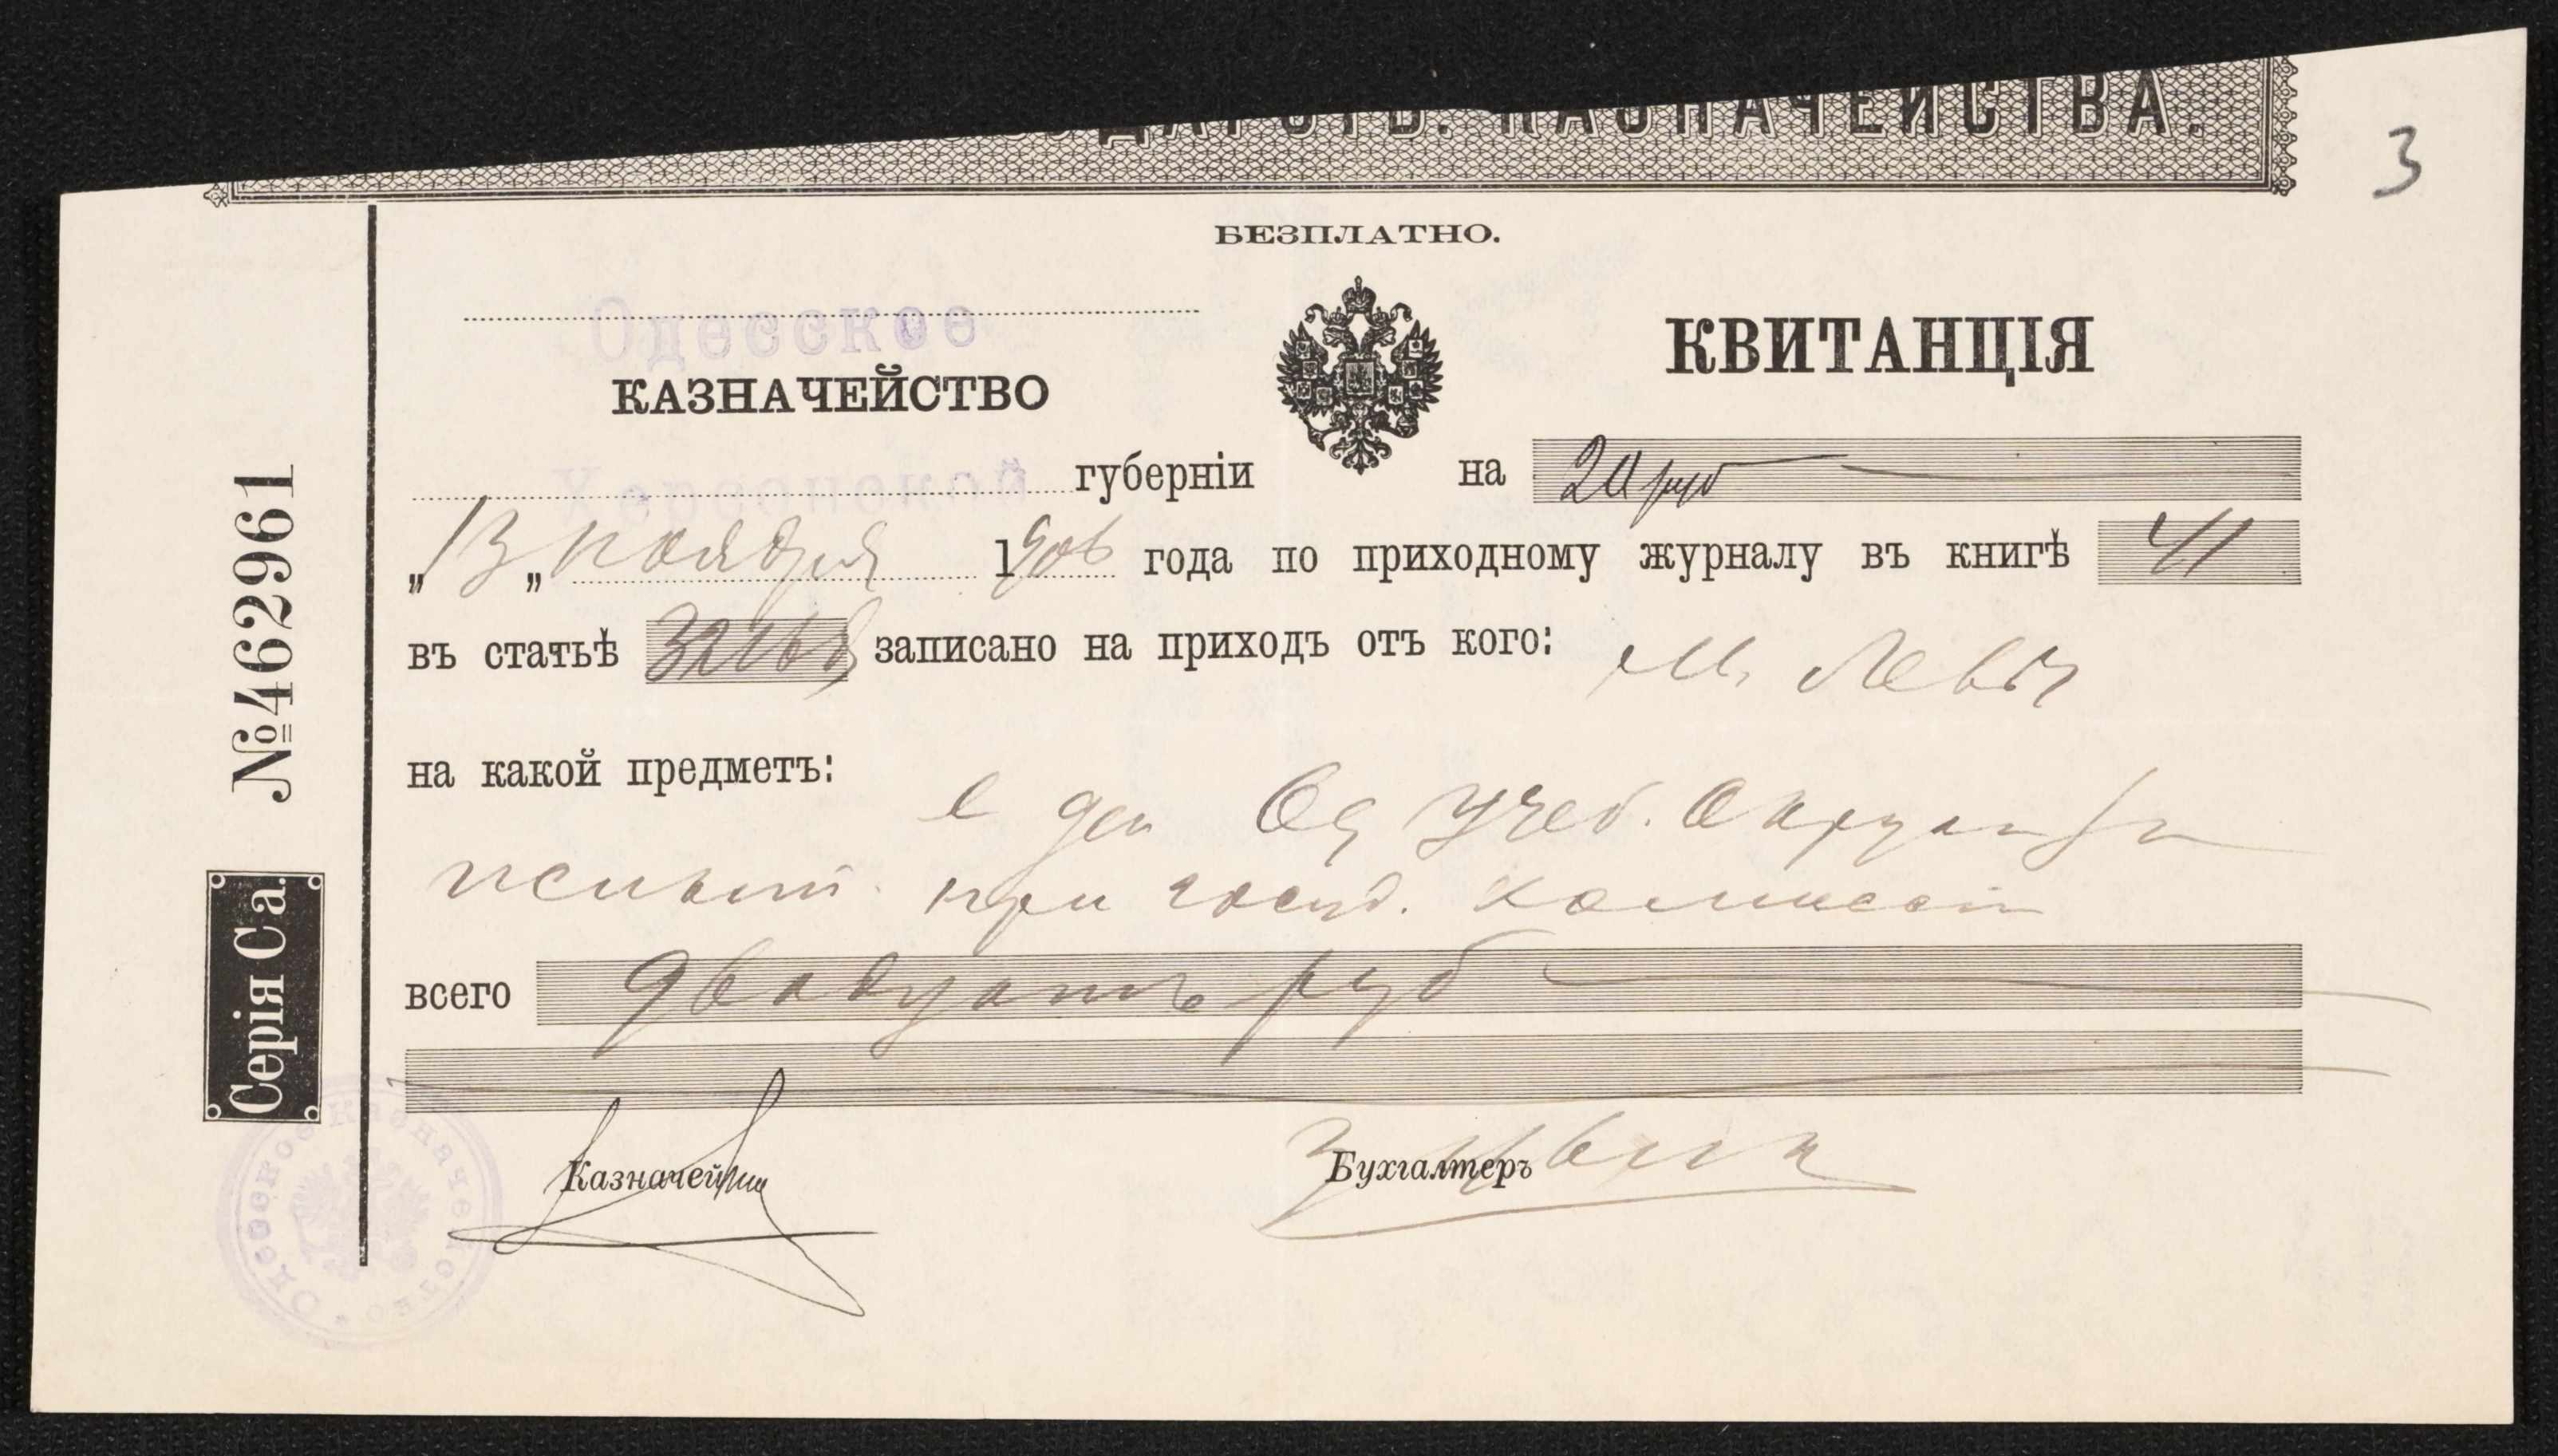 КАЗНАЧЕЙСТВА.
3
БЕЗПЛАТНО.
Одесское
КАЗНАЧЕЙСТВО
КВИТАНЦІЯ
Херсонской губерніи
на 20 руб
„13„ ноября 1906 года по приходному журналу въ книгѣ 41
въ статьѣ записано на приходъ отъ кого: М. Леви
на какой предметъ:
деп Од Учеб. Округа
при госуд. комиссіи
всего двадцать руб
Казначей
Бухгалтеръ
№ 462961
Серія Са.
Одесское Казначейство